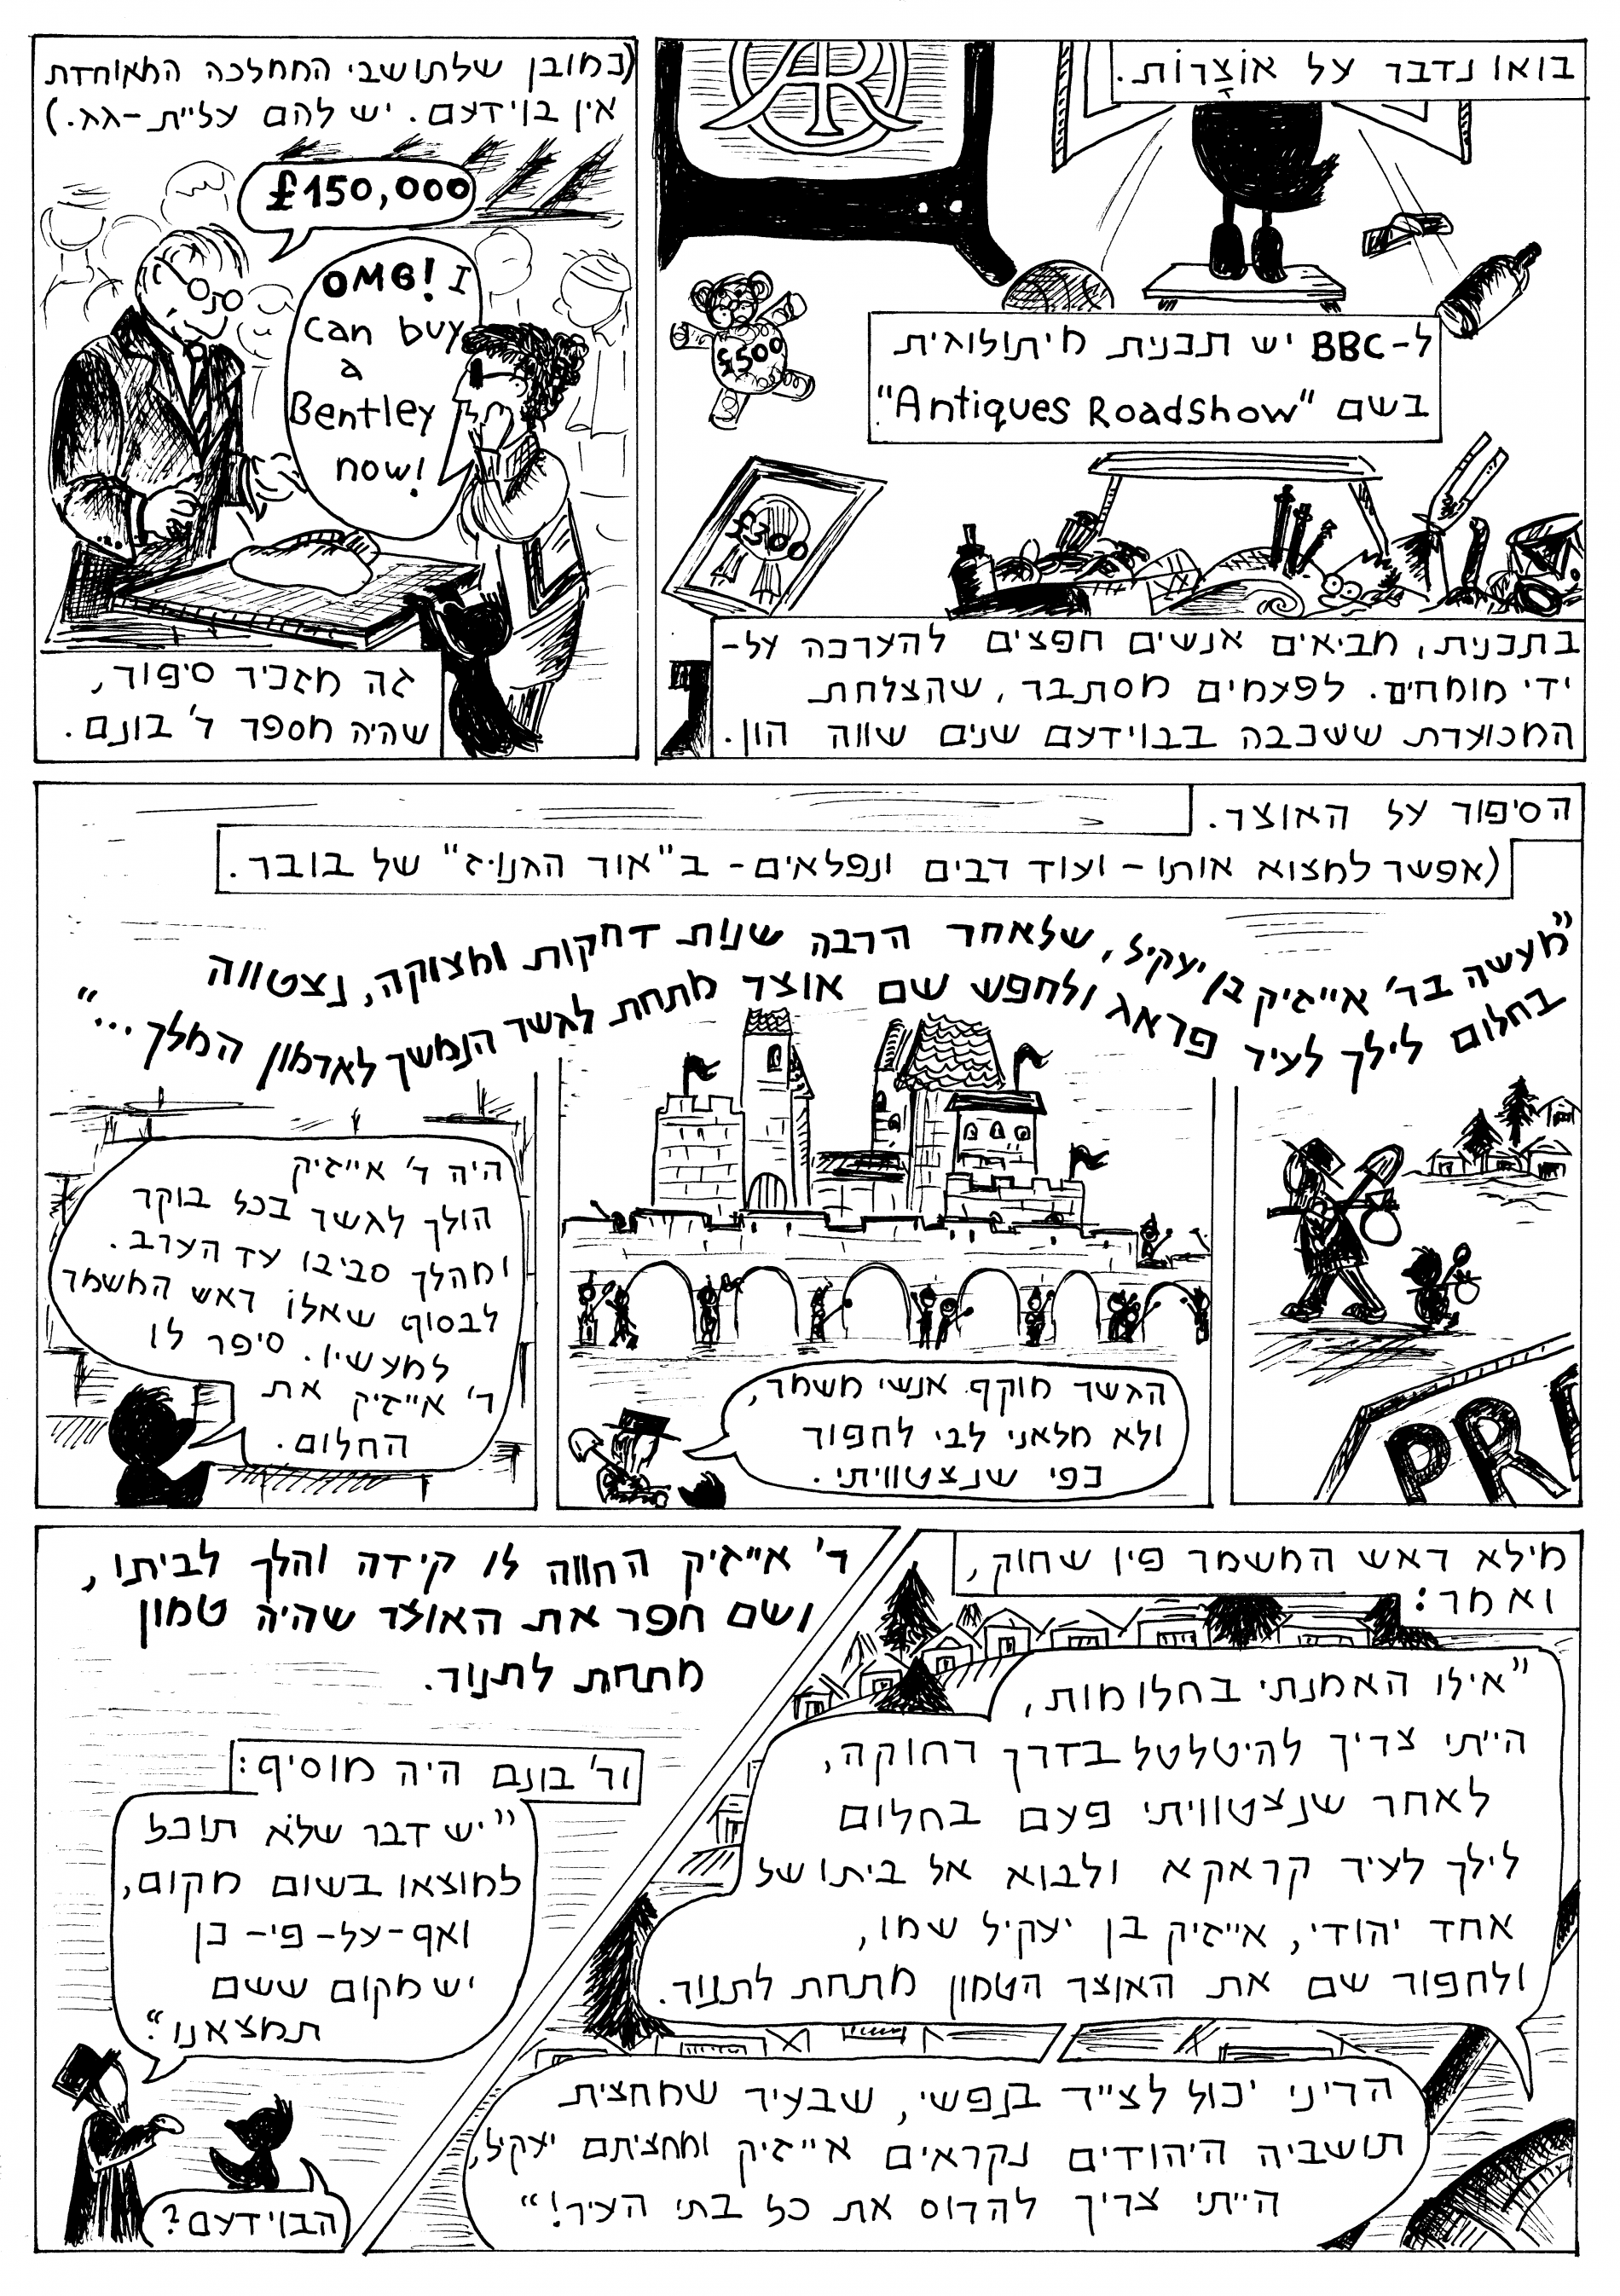 בואו נדבר על אוֹצָרוֹת.
AR
ל-BBC יש תכנית מיתולוגית
בשם "Antiques Roadshow"
£500
£300
בתכנית, מביאים אנשים חפצים להערכה על-
ידי מומחים. לפעמים מסתבר, שהצלחת
המכוערת ששכבה בבוידעם שנים שווה הון.
(כמובן שלתושבי הממלכה המאוחדת
אין בוידעם. יש להם עליית-גג.)
£150,000
OMG! I
can buy
a
Bentley
now!
זה מזכיר סיפור,
שהיה מספר ר' בונם.
הסיפור על האוצר.
(אפשר למצוא אותו - ועוד רבים ונפלאים - ב"אור הגנוז" של בובר.
"מעשה בר' אייזיק בן יעקיל, שלאחר הרבה שנות דחקות ומצוקה, נצטווה
בחלום לילך לעיר פראג ולחפש שם אוצר מתחת לגשר הנמשך לארמון המלך..."
PR
הגשר מוקף אנשי משמר,
ולא מלאני לבי לחפור
כפי שנצטוויתי.
היה ר' אייזיק
הולך לגשר בכל בוקר
ומהלך סביבו עד הערב.
לבסוף שאלוֹ ראש המשמר
למעשיו. סיפר לו
ר' אייזיק את
החלום.
מילא ראש המשמר פיו שחוק,
ואמר:
"אילו האמנתי בחלומות,
הייתי צריך להיטלטל בדרך רחוקה,
לאחר שנצטוויתי פעם בחלום
לילך לעיר קראקא ולבוא אל ביתו של
אחד יהודי, אייזיק בן יעקיל שמו,
ולחפור שם את האוצר הטמון מתחת לתנור.
הריני יכול לצייר בנפשי, שבעיר שמחצית
תושביה היהודים נקראים אייזיק ומחציתם יעקיל,
הייתי צריך להרוס את כל בתי העיר!"
ר' אייזיק החווה לו קידה והלך לביתו,
ושם חפר את האוצר שהיה טמון
מתחת לתנור.
ור' בונם היה מוסיף:
"יש דבר שלא תוכל
למוצאו בשום מקום,
ואף-על-פי-כן
יש מקום ששם
תמצאנו".
הבוידעם?